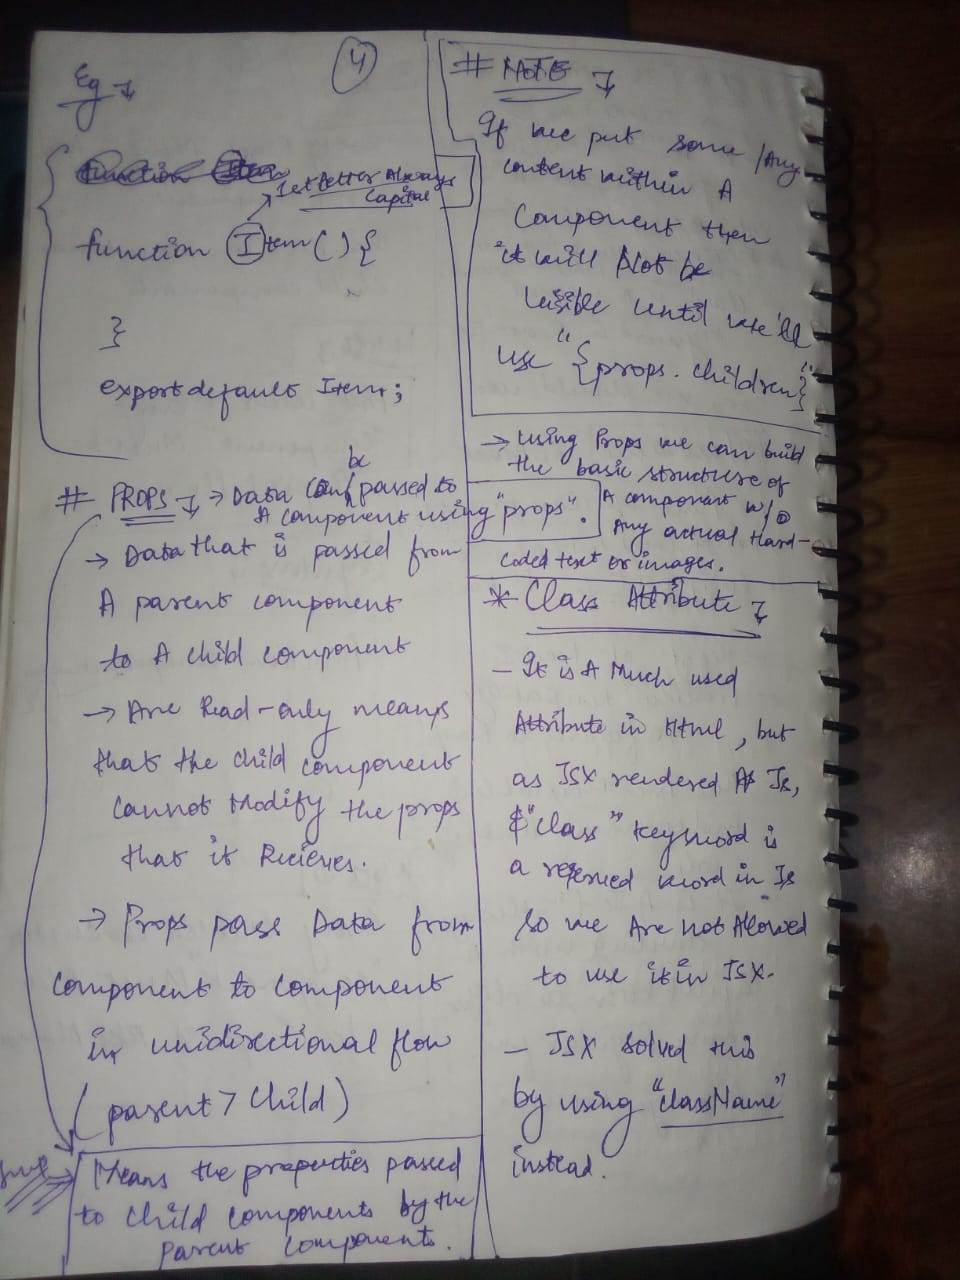 4
Eg
1st letter Always
Capital
function Item () {
}
export default Item;
# PROPS → Data can be passed to
A component using "props".
→ Data that is passed from
A parent component
to A child component
→ Are Read-only means
that the child component
cannot Modify the props
that it Recieves.
→ Props pass Data from
component to component
in unidirectional flow
(parent > Child)
Means the properties passed
to child components by the
parent components.
# NOTE
If we put some / Any
content within A
Component then
it will Not be
visible until we'll
use "{props.children}"
→ Using Props we can build
the basic structure of
A component w/o
Any actual Hard-
coded text or images.
* Class Attribute
- It is A Much used
Attribute in Html, but
as JSX rendered As Js,
& "class" keyword is
a reserved word in Js
So we Are not Allowed
to use it in JSX.
- JSX solved this
by using "className"
instead.